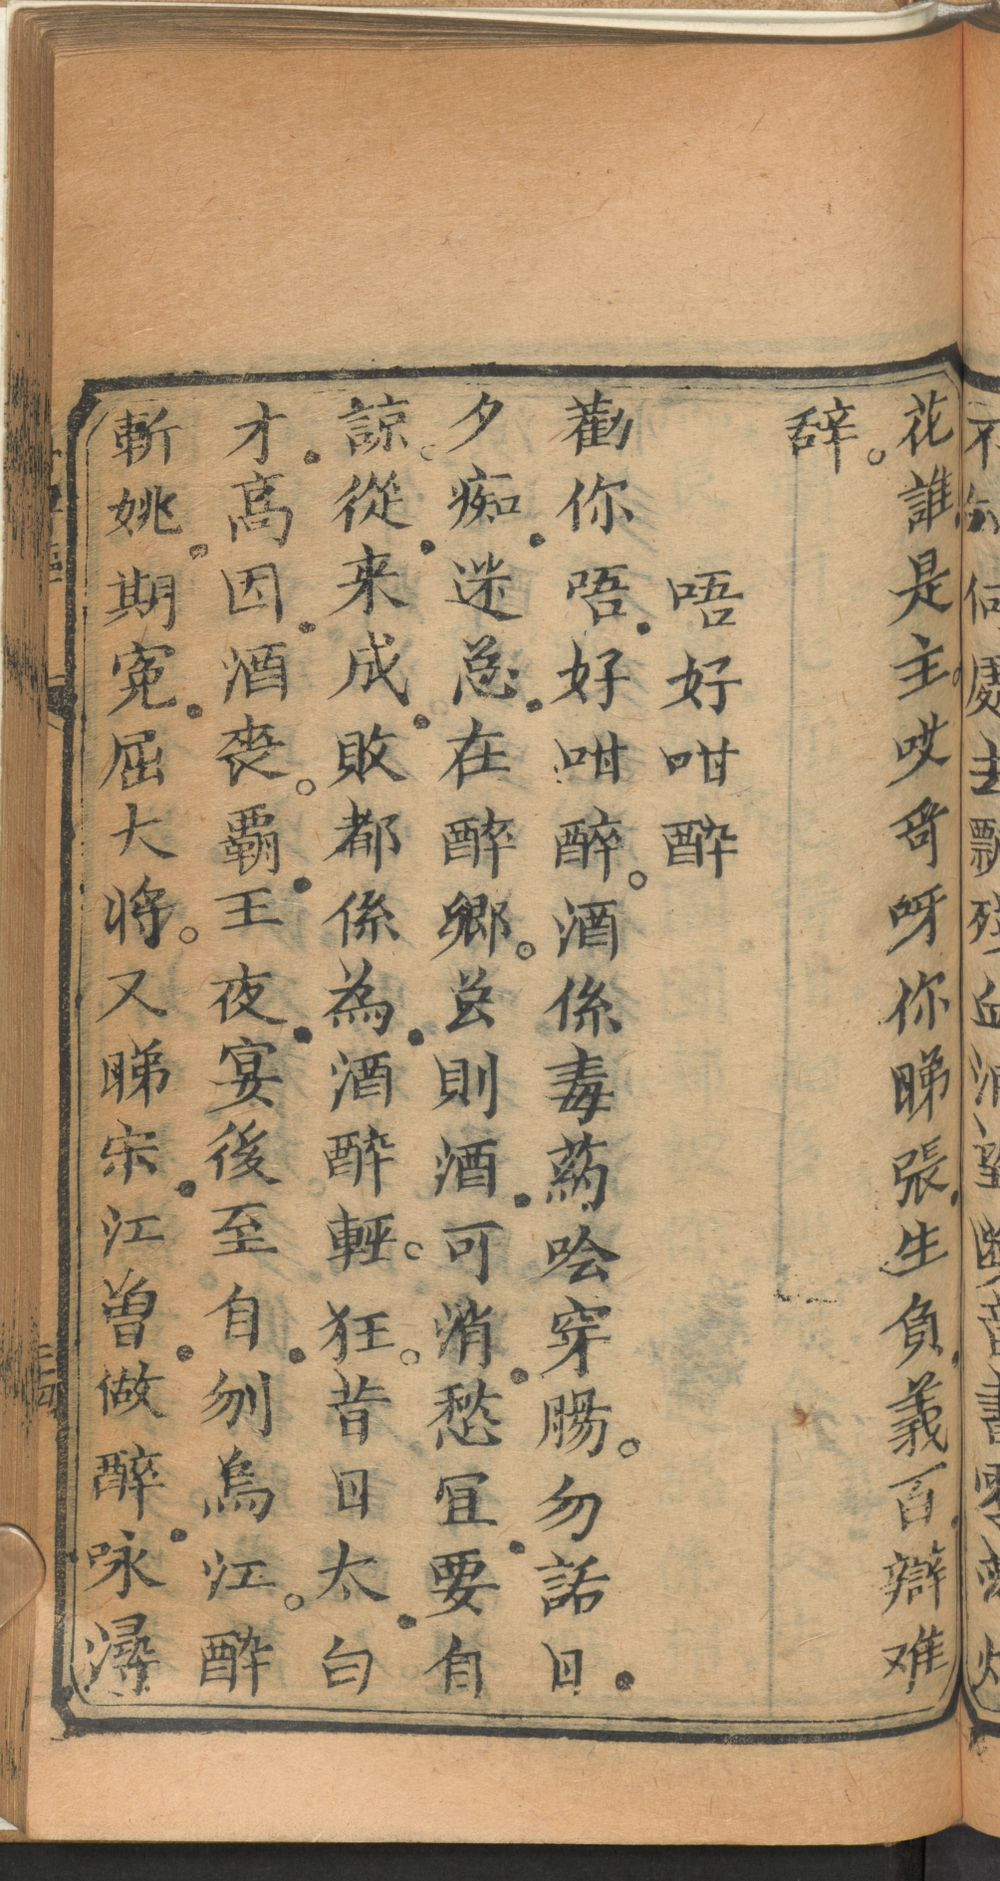 花誰是主。哎奇呀你睇張生負義百辯难
辞。
唔好咁酔
勸你唔好咁醉。酒係毒葯噲穿腸。勿話日
夕痴迷总在醉鄉。总則酒可消愁宜要自
諒。從来成敗都係為酒酔輕。狂。昔日太白
才高因酒喪。覇王夜宴後至自刎烏江。酔
斬姚期寃屈大将。又睇宋江曽做醉咏潯